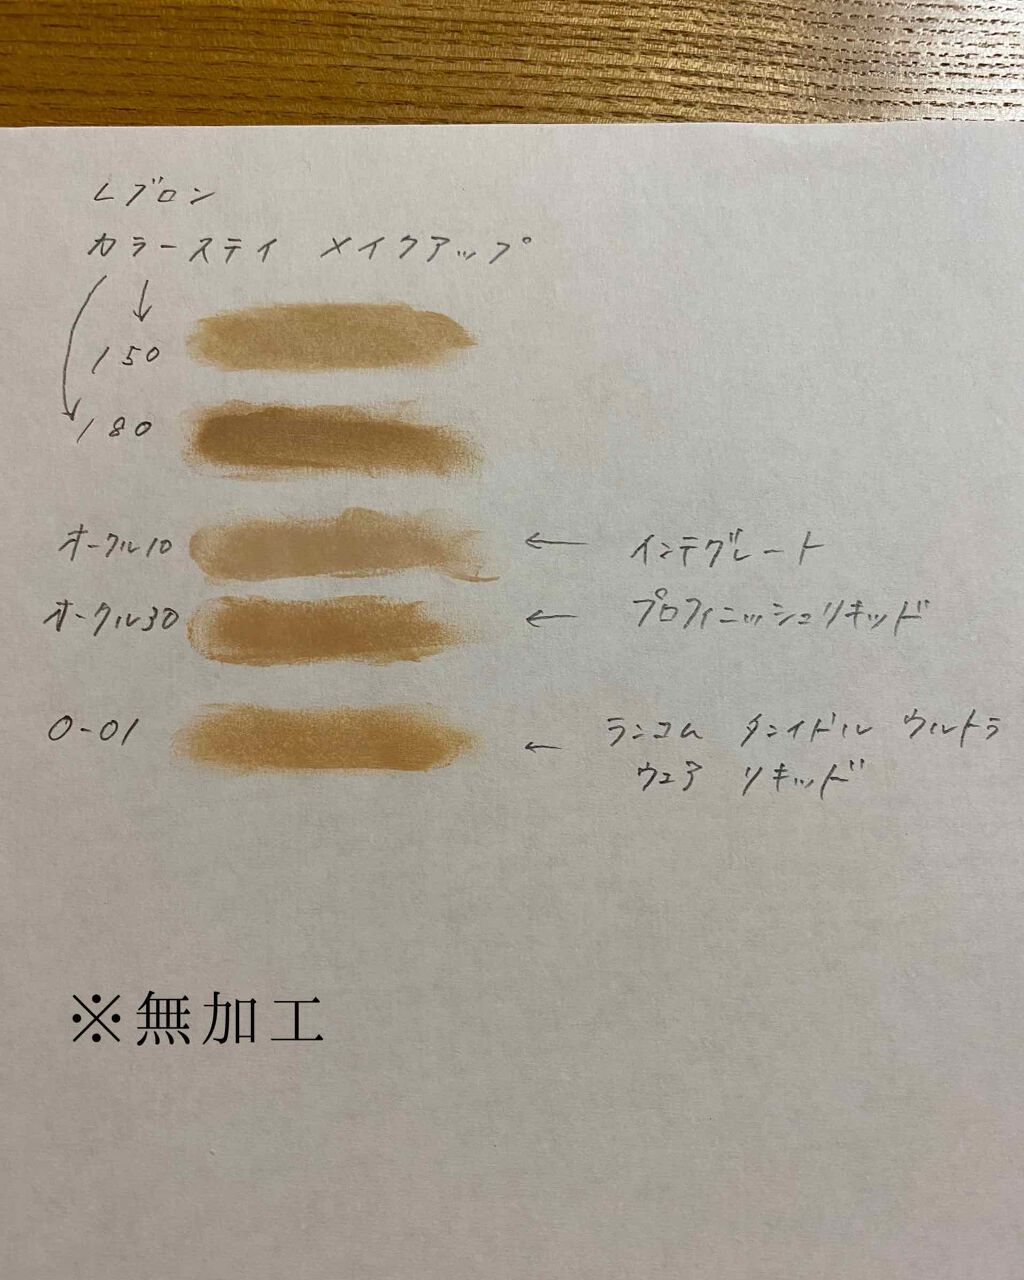 レブロン
カラーステイ メイクアップ
150
180
オークル10 ← インテグレート
オークル30 ← プロフィニッシュリキッド
O-01 ← ランコム タンイドル ウルトラ
ウェア リキッド
※無加工